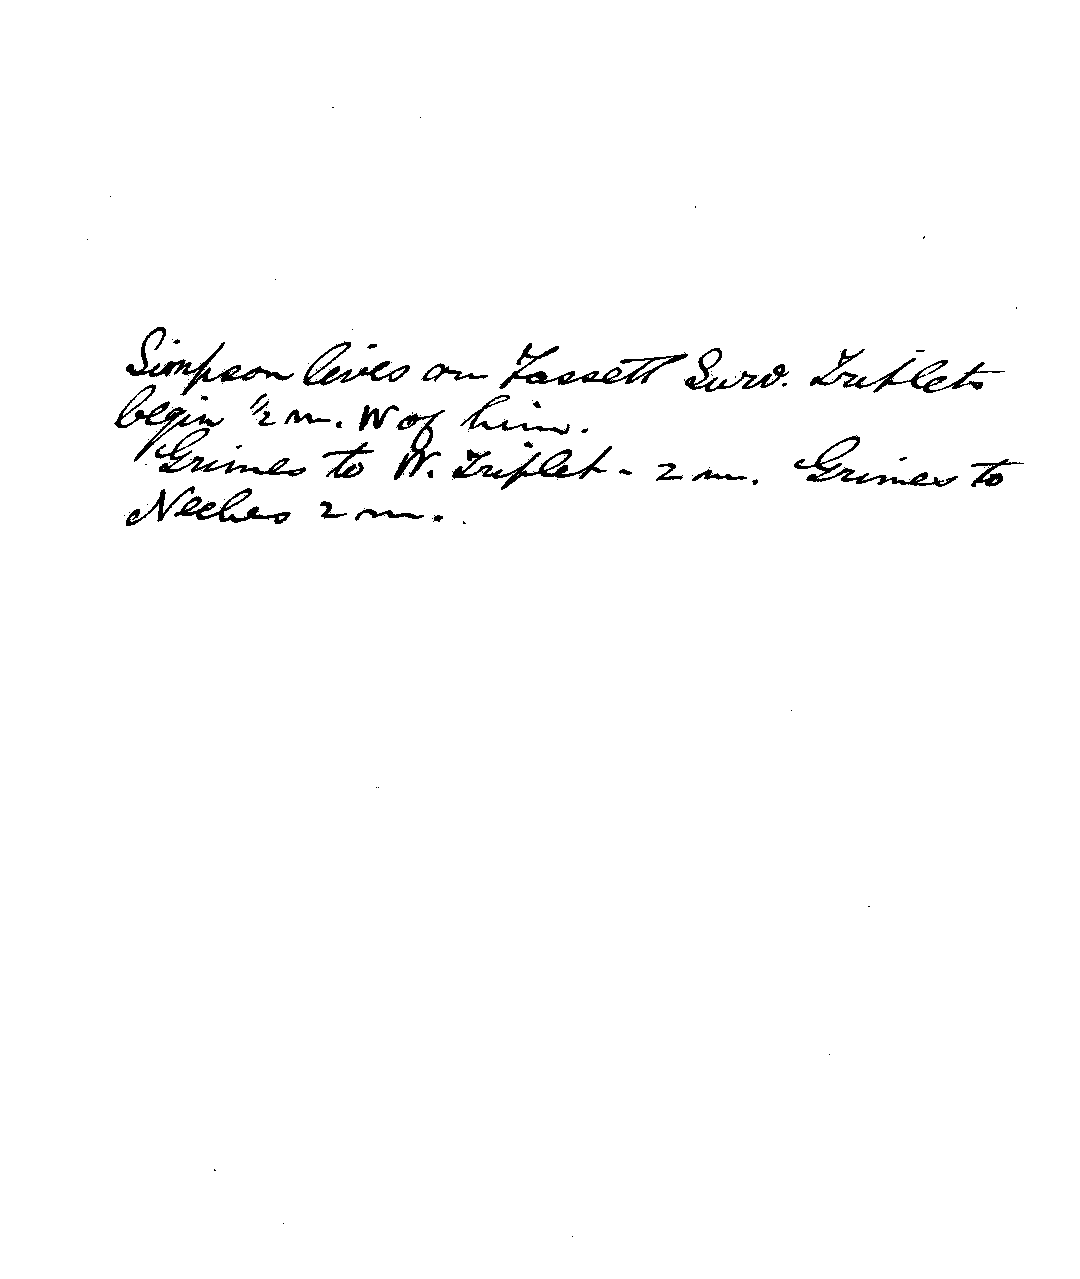 Simpson lives on Fassett Surv. Triplets
begin 1/2 m. W of him.
Grimes to W. Triplet - 2 m. Grimes to
Neches 2 m.